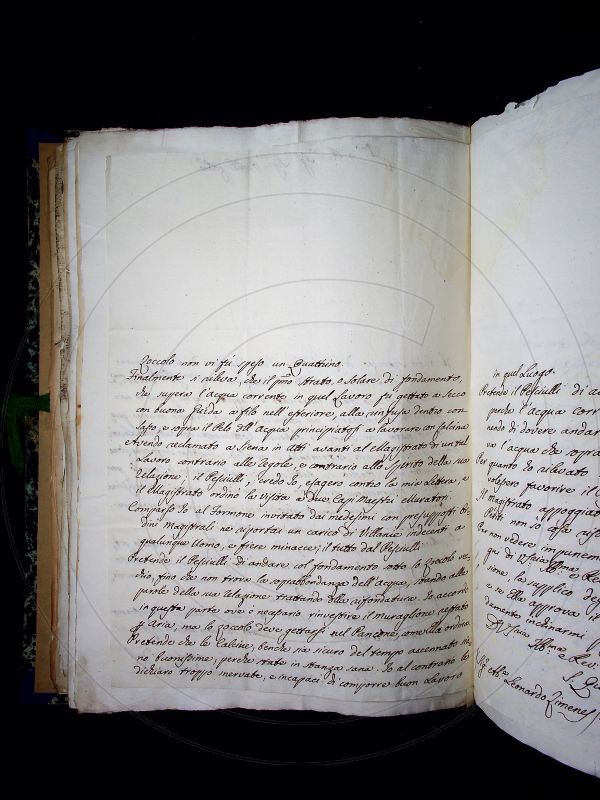 Zoccolo non vi fù speso un Quattrino.
Finalmente si rileva, che il pmo strato, o solare di fondamento,
che supera l'acqua corrente in quel lavoro fù gettato a secco
con buona guida a filo nell'esteriore, alla rinfusa dentro con
sassi, e sopra il Pelo dell'Acqua principiatosi a lavorare con calcina
Avendo reclamato a Siena in Atti avanti al Magistrato di un tal
Lavoro contrario alle Regole, e contrario allo Spirito della sua
Relazione; il Pesciulli, credo Io, esagerò contro la mia Lettera, e
il Magistrato ordinò la Visita a due Capi Maestri Muratori.
Comparso Io al Tormone invitato dai medesimi con presupposti Or
dini Magistrali ne riportai un carico di Villanie indecenti a
qualunque Uomo, e fiere minacce; il tutto dal Pesciulli.
Pretende il Pesciulli di andare col fondamento sotto lo Zoccolo vec
chio, fino che non trova la soprabbondanza dell'Acqua, stando alle
parole della sua Relazione trattando della rifondatura. Io accordo
in questa parte ove è necessario rinvestire il muraglione gettato
Aria, ma lo zoccolo deve gettarsi nel Pancone, come Ella ordina
Pretende che le Calcine, benche sia sicuro del tempo accennato sia
no buonissime, perche state in stanza sana. Io al contrario le
dichiaro troppo snervate, e incapaci di comporre buon Lavoro
in quel Luogo.
Pretende il Pesciulli di
perda l'acqua corr
nendo di dovere andar
va l'acqua che sopra
Per quanto ho rilevato
volessero favorire il
Il Magistrato appoggiato
Periti non si
Per non vedere impunem
qui di V.S. Illma e
sime, la supplico deg
e se Ella approva il
damente inchiarmi
Di V.S. Illma e Rev.
Sig. Abe Leonardo Ximenes